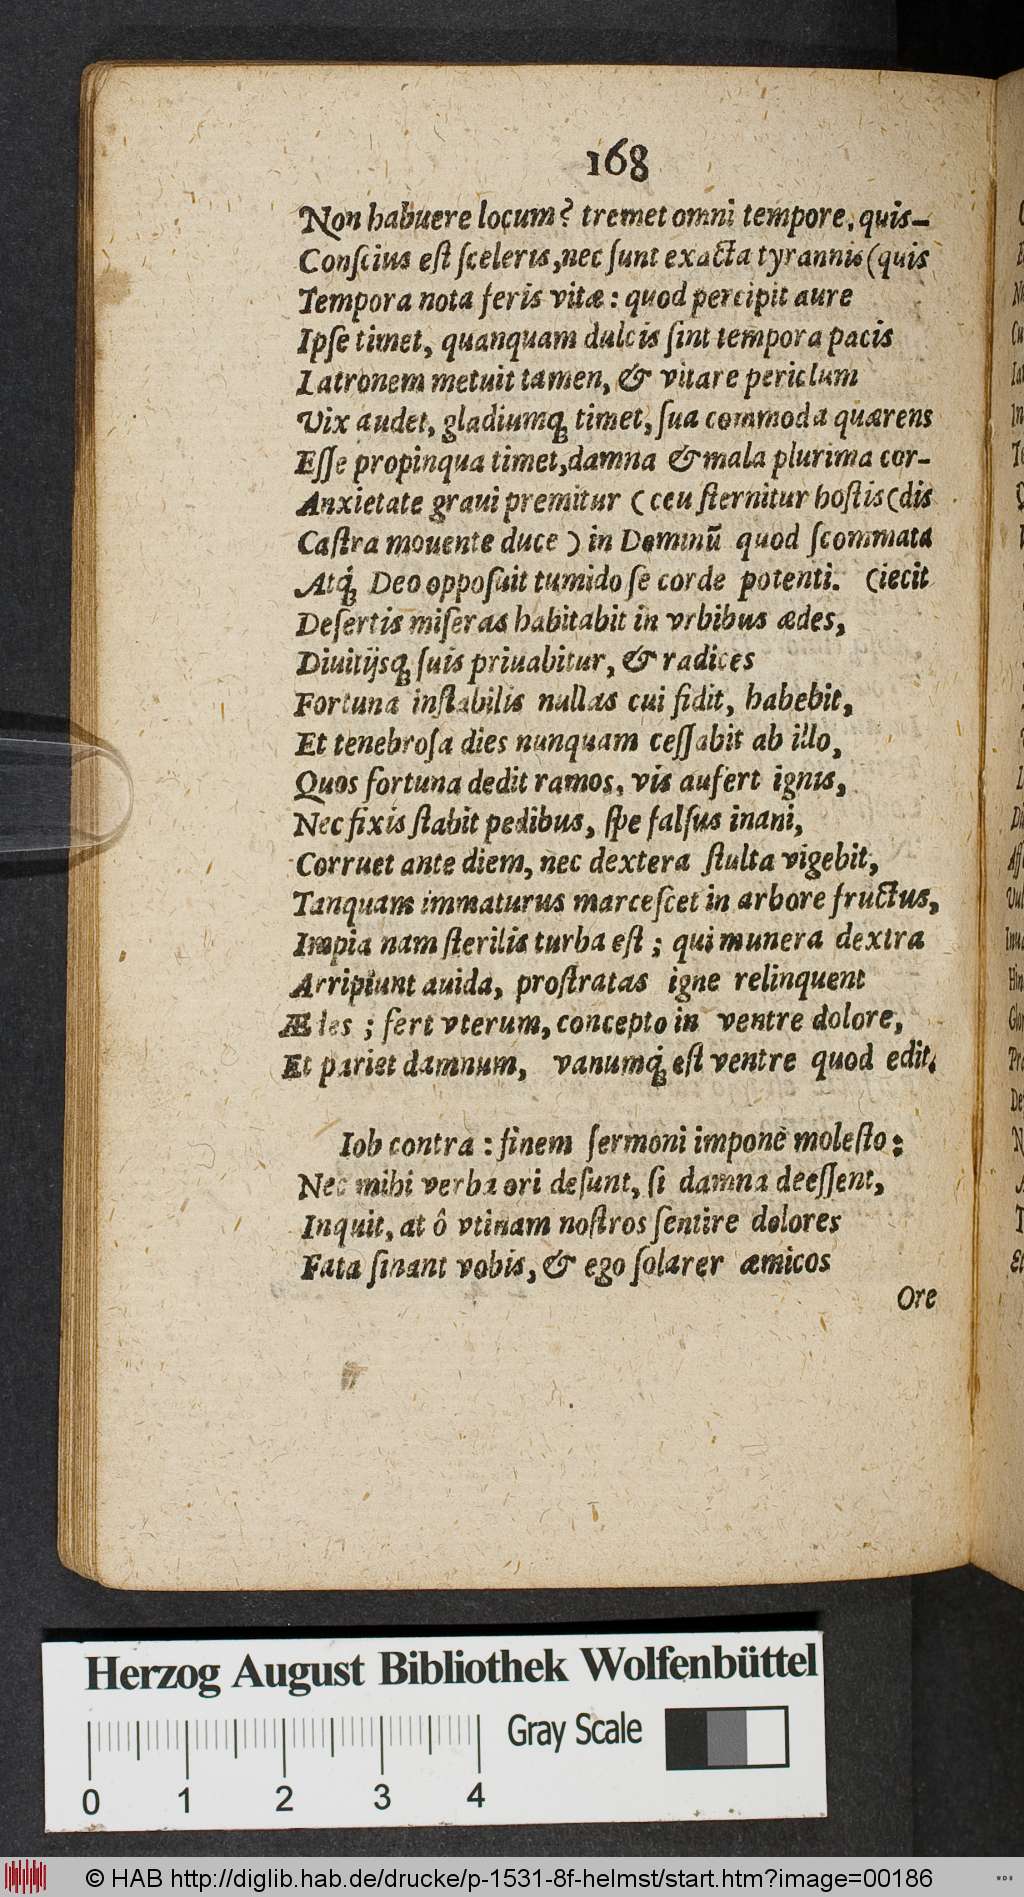 168
Non habuere locum? tremet omni tempore, quis-
Conſcius eſt ſceleris, nec ſunt exacta tyrannis (quis
Tempora nota feris vitæ: quod percipit aure
Ipſe timet, quanquam dulcis ſint tempora pacis
Latronem metuit tamen, & vitare periclum
Vix audet, gladiumq́; timet, ſua commoda quærens
Eſſe propinqua timet, damna & mala plurima cor-
Anxietate graui premitur (ceu ſternitur hoſtis (dis
Caſtra mouente duce) in Dominũ quod ſcommata
Atq́; Deo oppoſuit tumido ſe corde potenti. (iecit
Deſertis miſeras habitabit in vrbibus ædes,
Diuitijsq́; ſuis priuabitur, & radices
Fortuna inſtabilis nullas cui fidit, habebit,
Et tenebroſa dies nunquam ceſſabit ab illo,
Quos fortuna dedit ramos, vis aufert ignis,
Nec fixis ſtabit pedibus, ſpe falſus inani,
Corruet ante diem, nec dextera ſtulta vigebit,
Tanquam immaturus marceſcet in arbore fructus,
Impia nam ſterilis turba eſt; qui munera dextra
Arripiunt auida, proſtratas igne relinquent
Ædes; fert vterum, concepto in ventre dolore,
Et pariet damnum, vanumq́; eſt ventre quod edit.
Iob contra: finem ſermoni impone moleſto:
Nec mihi verba ori deſunt, ſi damna deeſſent,
Inquit, at ô vtinam noſtros ſentire dolores
Fata ſinant vobis, & ego ſolarer æmicos
Ore
Herzog August Bibliothek Wolfenbüttel
Gray Scale
0 1 2 3 4
© HAB http://diglib.hab.de/drucke/p-1531-8f-helmst/start.htm?image=00186